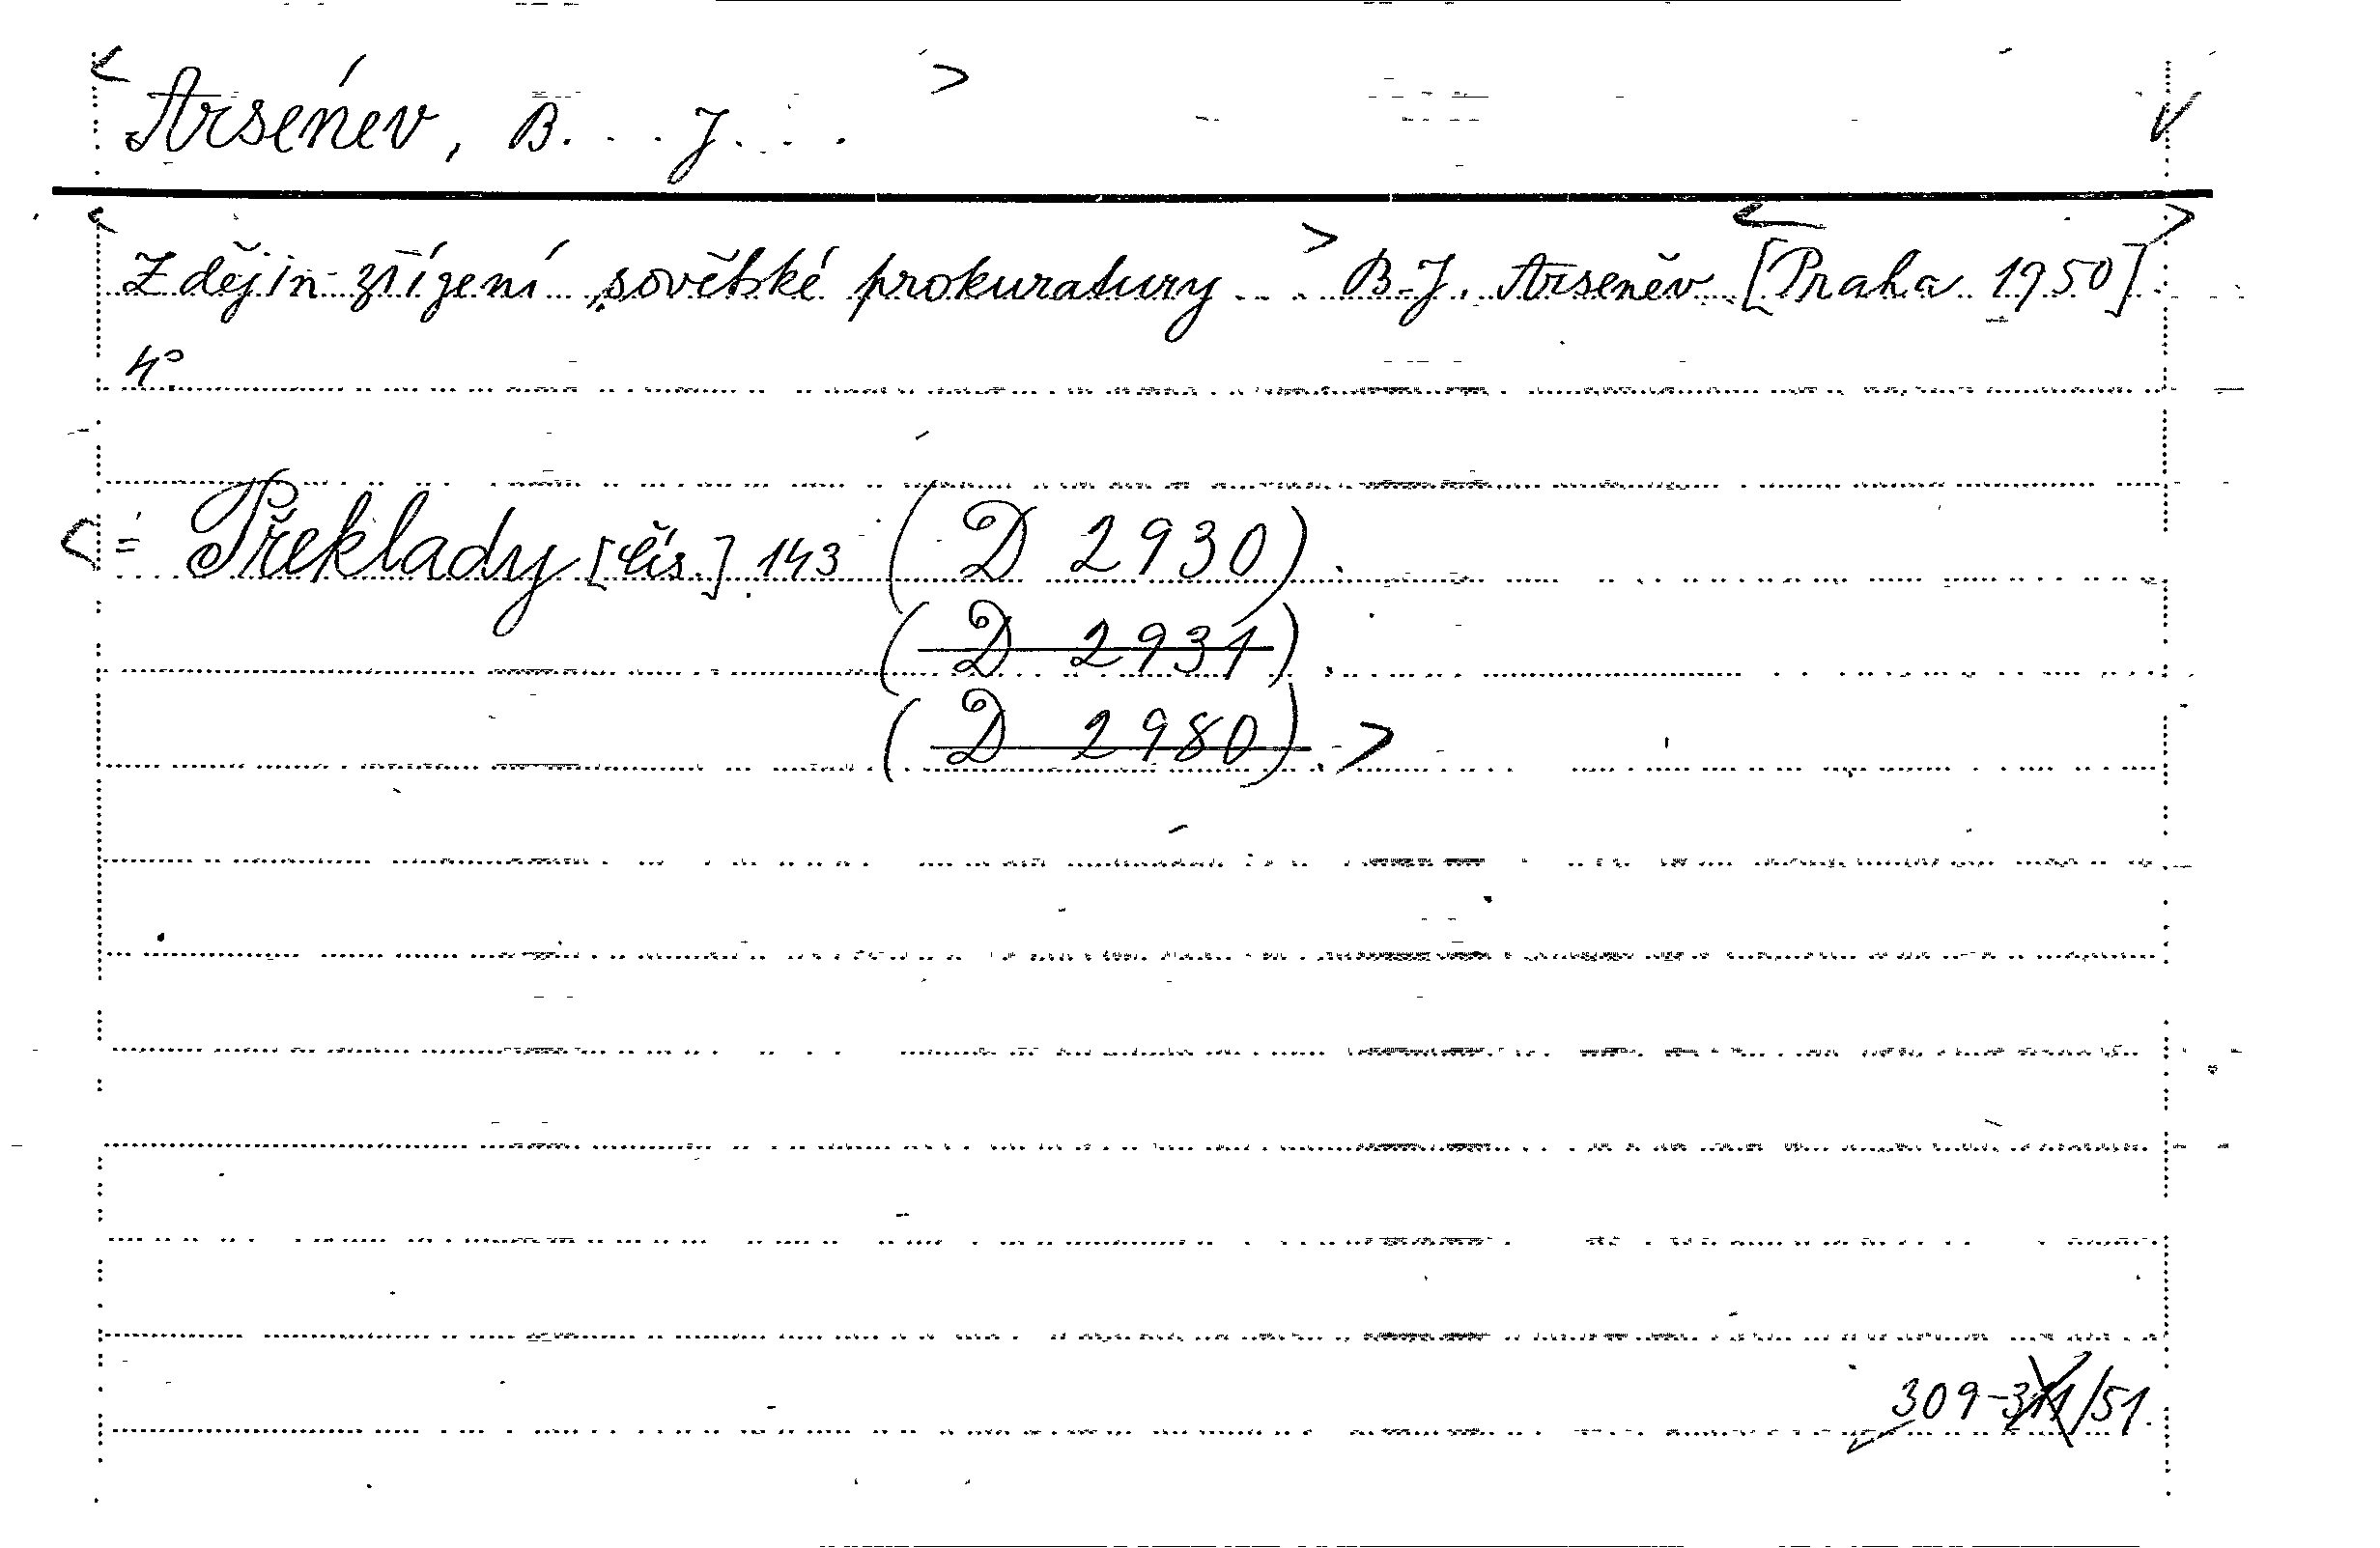 Arséněv, B. . . J. . . .
Z dějin zřízení sovětské prokuratury . . . B. J. Arseněv [Praha 1950].
4°.
= Překlady [čís.] 143 (D 2930).
(D 2931).
(D 2980).
309-311/51.